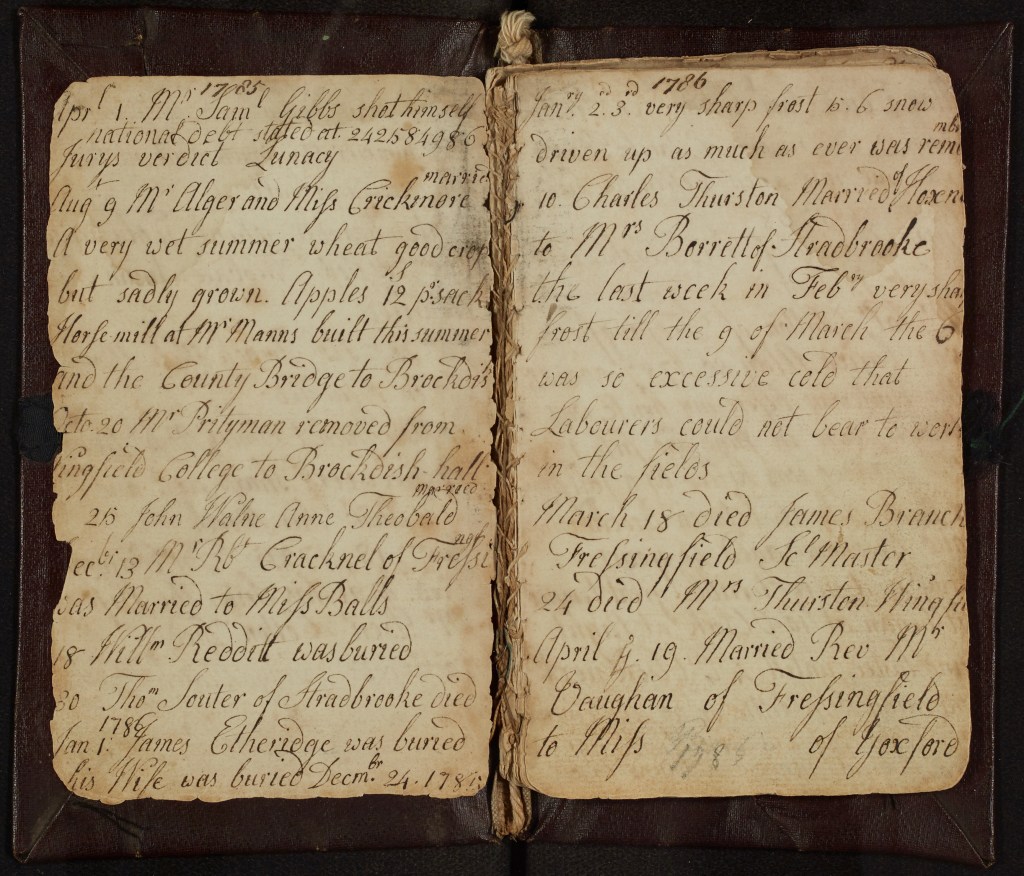 1785
Apr^l 1. M^r Sam^l Gibbs shot himself
national debt stated at 242584986
Jurys verdict Lunacy
married
Aug^t 9 M^r Alger and Miſs Crickmore
A very wet summer wheat good crop
but sadly grown. Apples 12^s p^r. sack
Horse mill at M^r Manns built this summer
and the County Bridge to Brockdis
Octo. 20 M^r Prityman removed from
ingfield College to Brockdish-hall
married
25 John Walne Anne Theobald
ng^f
ec^br. 13 M^r Rb^t Cracknel of Freſsi
was Married to Miſs Balls
18 Will^m Reddit was buried
30 Tho^m Souter of Stradbrooke died
1786
Jan 1. James Etheridge was buried
his Wife was buried Decm^br. 24. 1785
1786
Jan^ry. 2^rd. 3^rd very sharp frost 5. 6 snow
mbr
driven up as much as ever was reme
10. Charles Thurston Married of Hoxne
to M^rs Borrett of Stradbrooke
the last week in Feb^ry very shar
frost till the 9 of March the 6
was so excessive cold that
Labourers could not bear to work
in the fields
March 18 died James Branch
Freſsingfield Sc^l Master
24 died M^rs Thurston Wingfi
April 19. Married Rev M^r
Vaughan of Freſsingfield
to Miſs of Yoxford